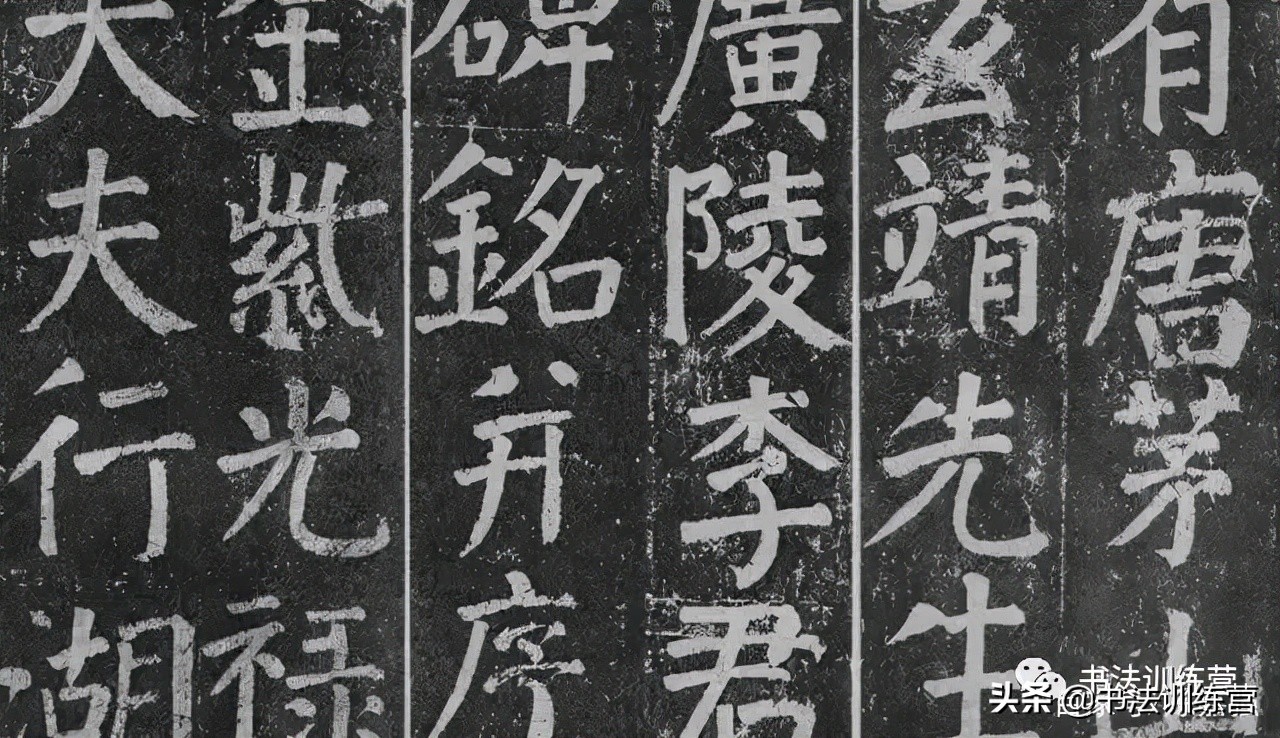 有唐茅山
玄靖先生
廣陵李君
碑銘并序
金紫光禄
大夫行湖
书法训练营
头条@书法训练营